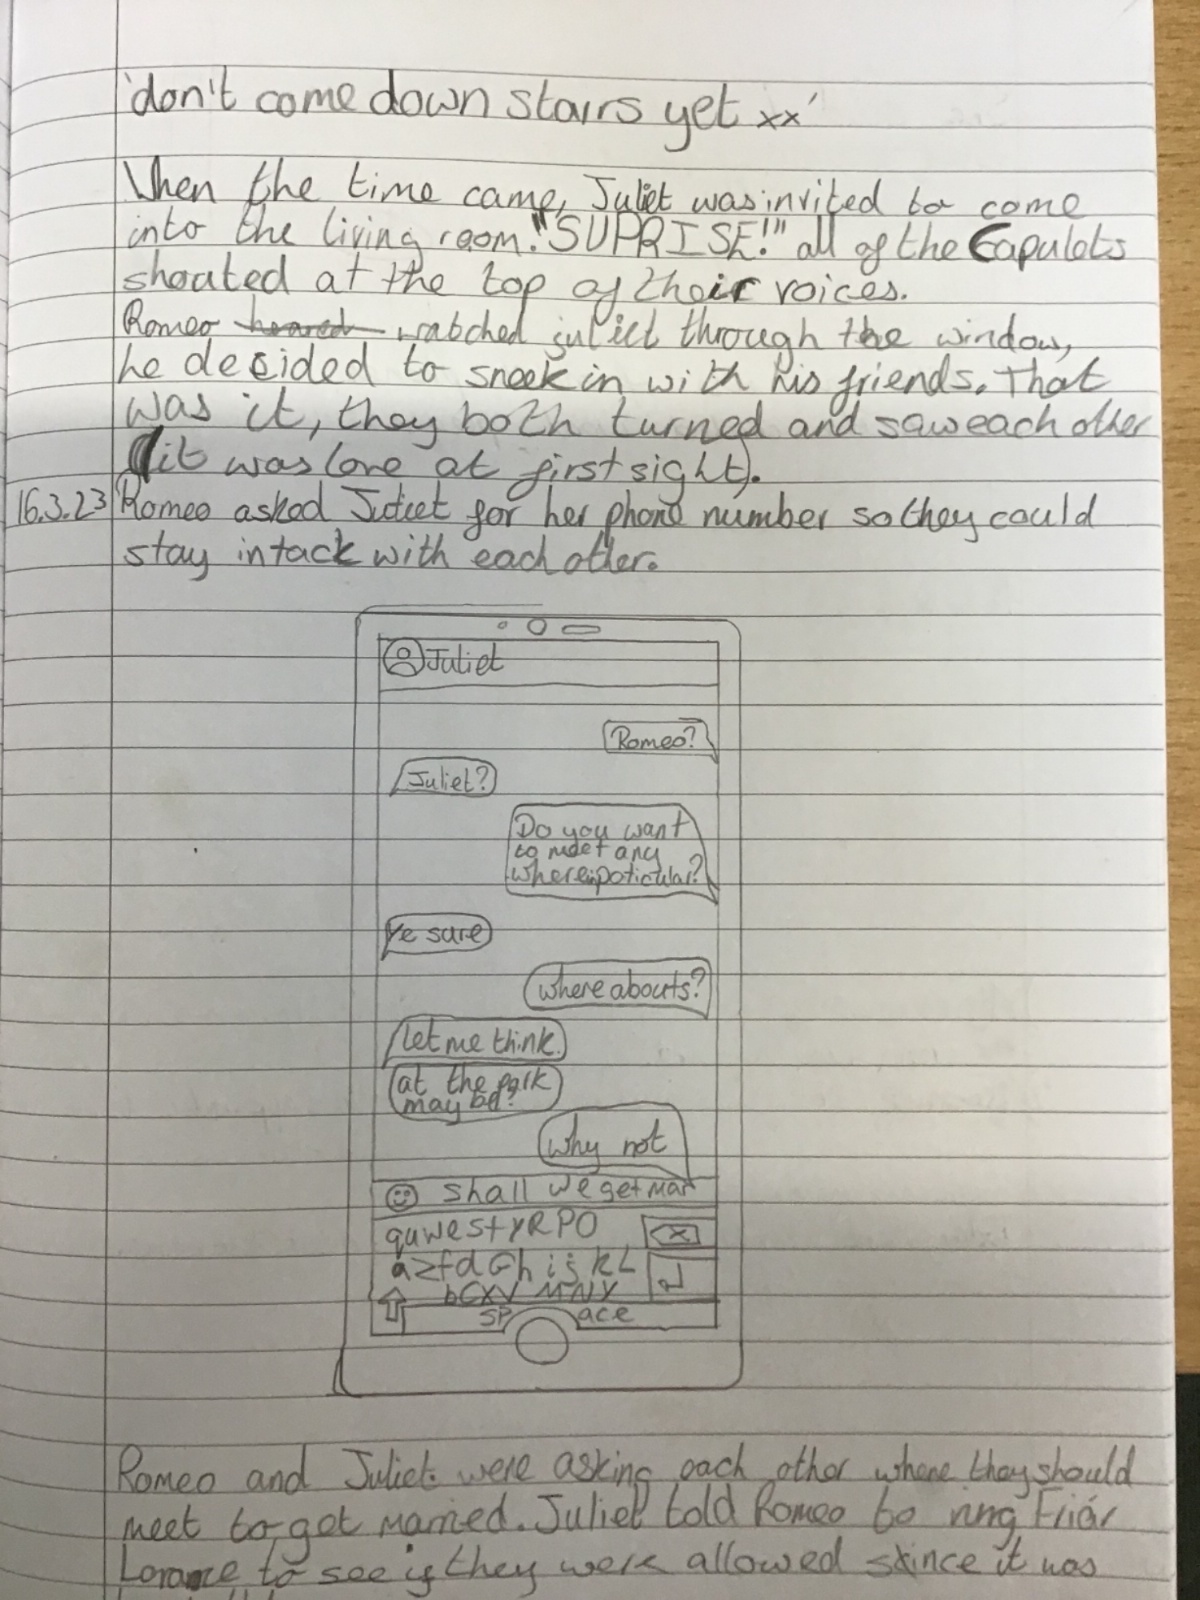 'don't come down stairs yet xx'
When the time came, Juliet was invited to come
into the living room. "SUPRISE!" all of the Capulets
shouted at the top of their voices.
Romeo heared watched juliet through the window,
he decided to sneek in with his friends. That
was it, they both turned and saw each other
(it was love at first sight).
16.3.23 Romeo asked Juliet for her phone number so they could
stay in tack with each other.
Juliet
Romeo?
Juliet?
Do you want
to meet any
where in poticular?
Ye sure
where abouts?
let me think.
at the park
may be?
why not
shall we get mar
quwestyRPO
azfdGhijkL
bCXV MNY
SP ace
Romeo and Juliet were asking each other where they should
meet to get married. Juliet told Romeo to ring Friar
to see if they were allowed since it was